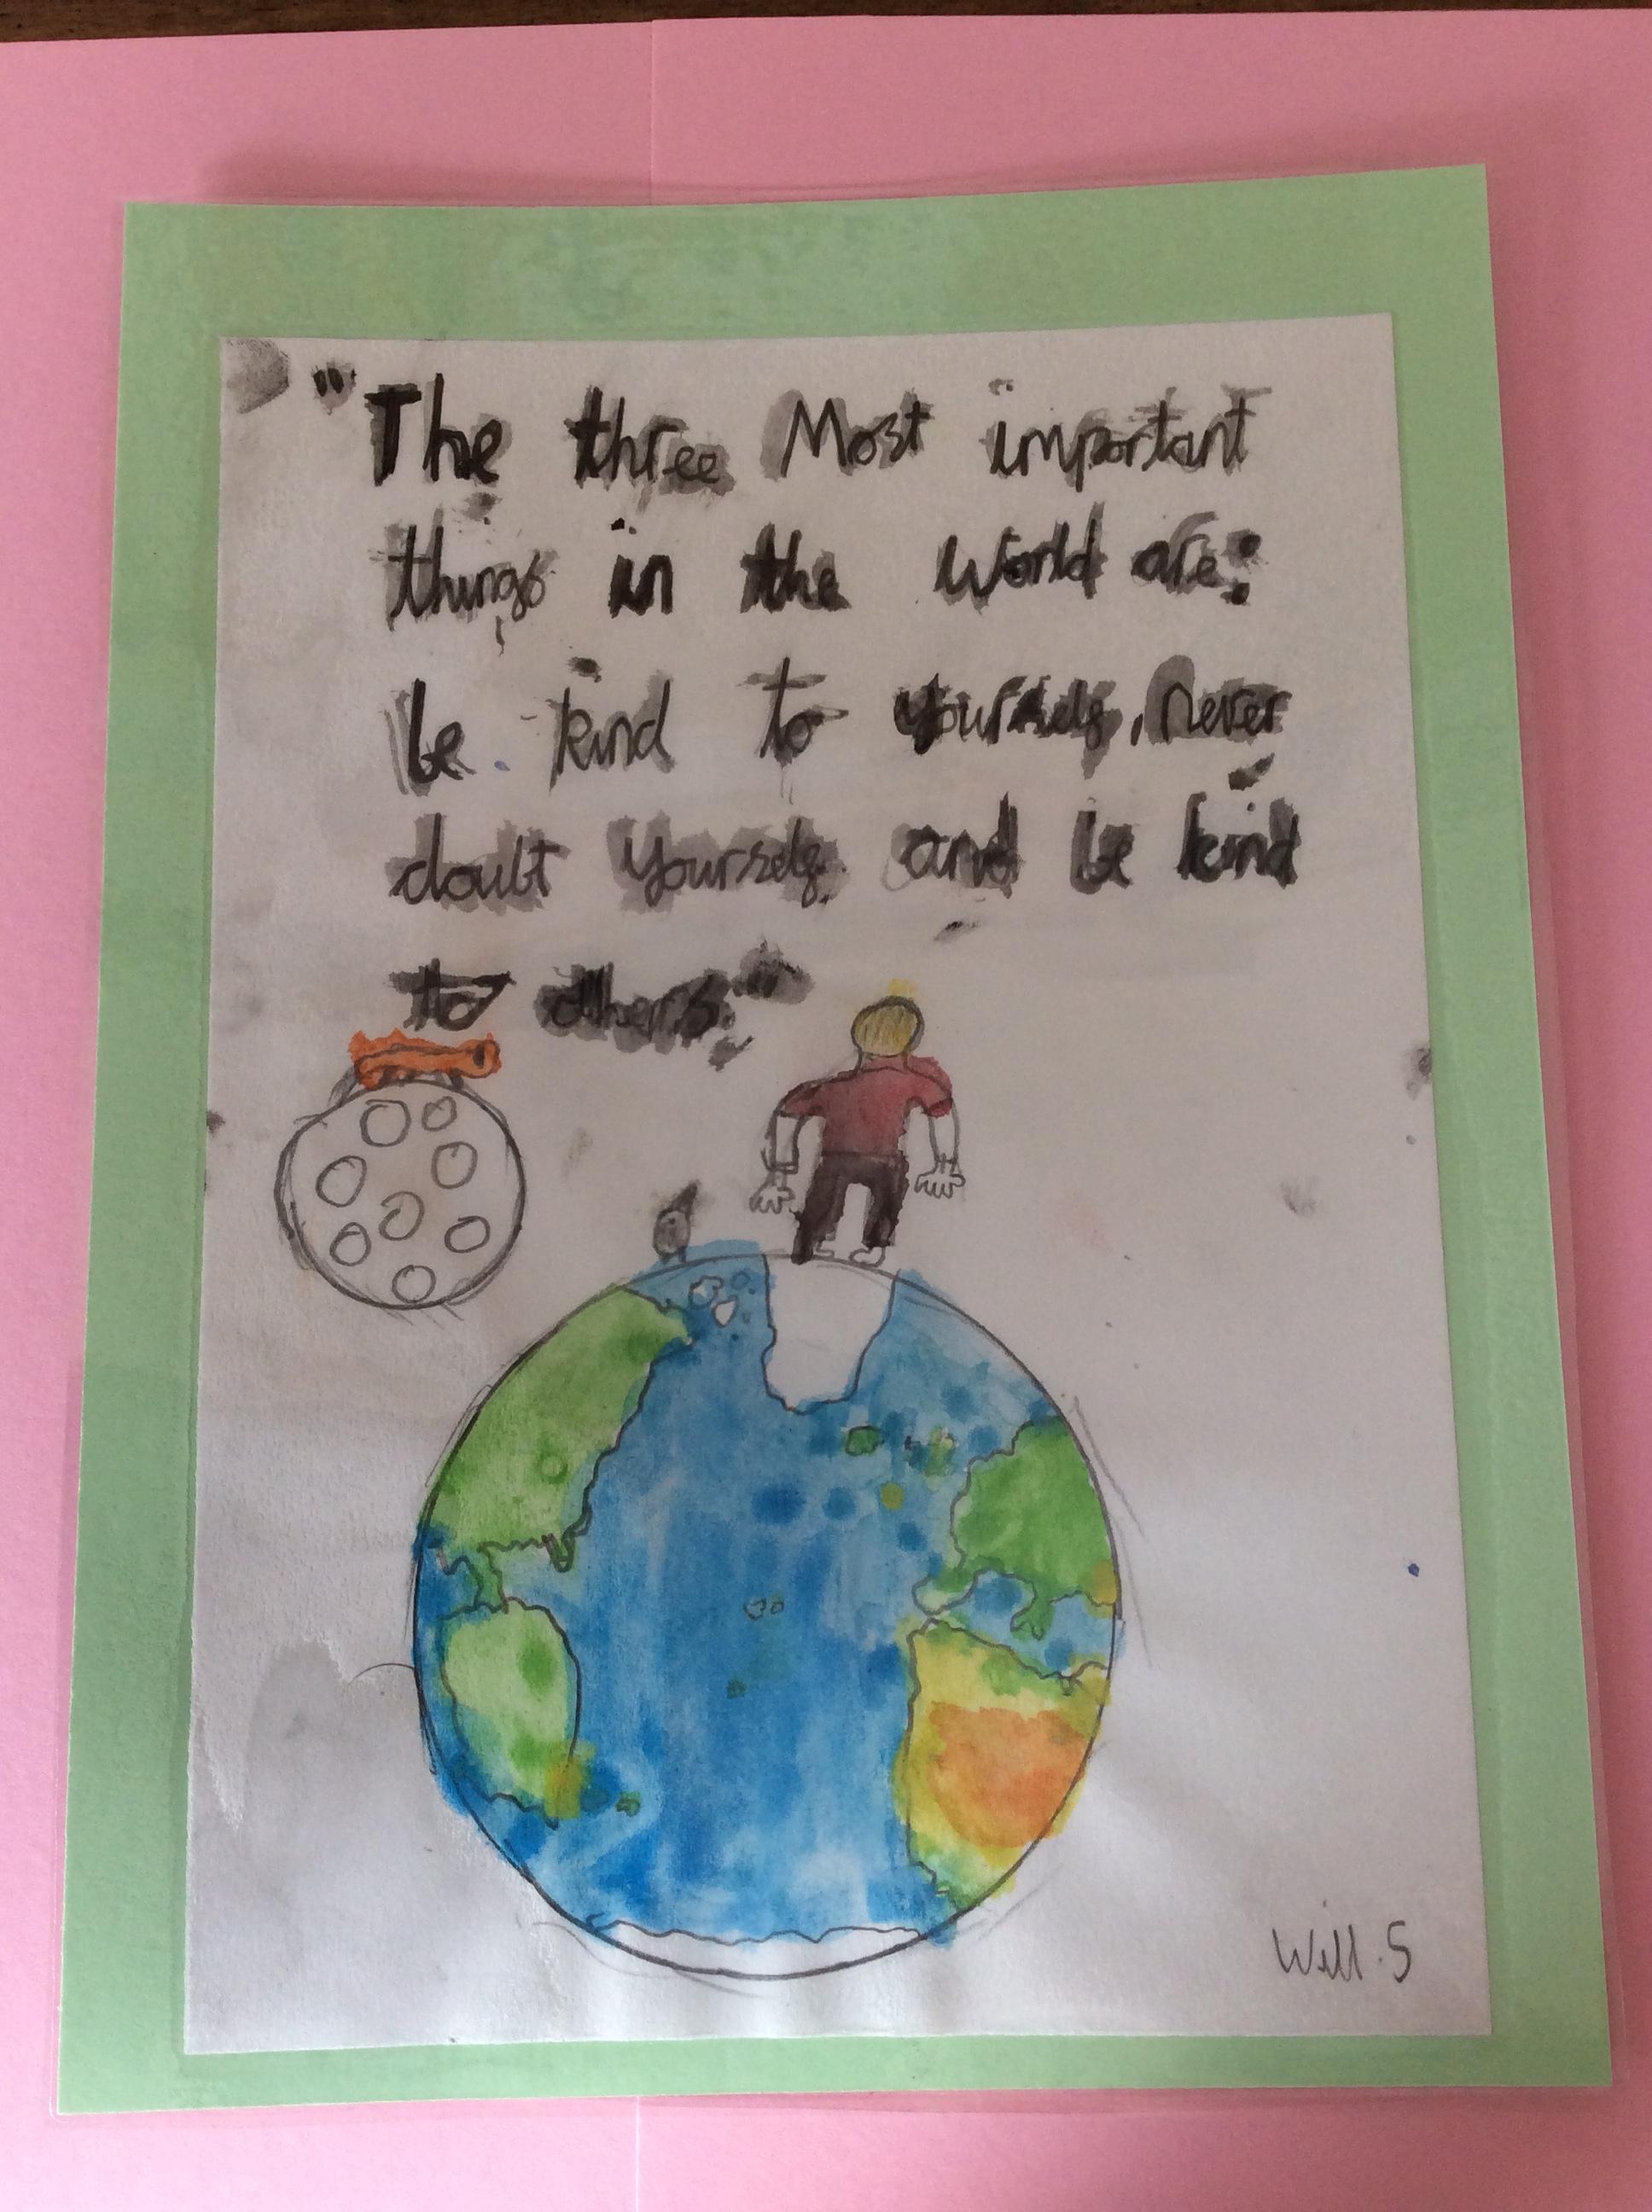 "The three Most important
things in the World are:
be kind to yourself, never
doubt yourself, and be kind
to others."
Will.S